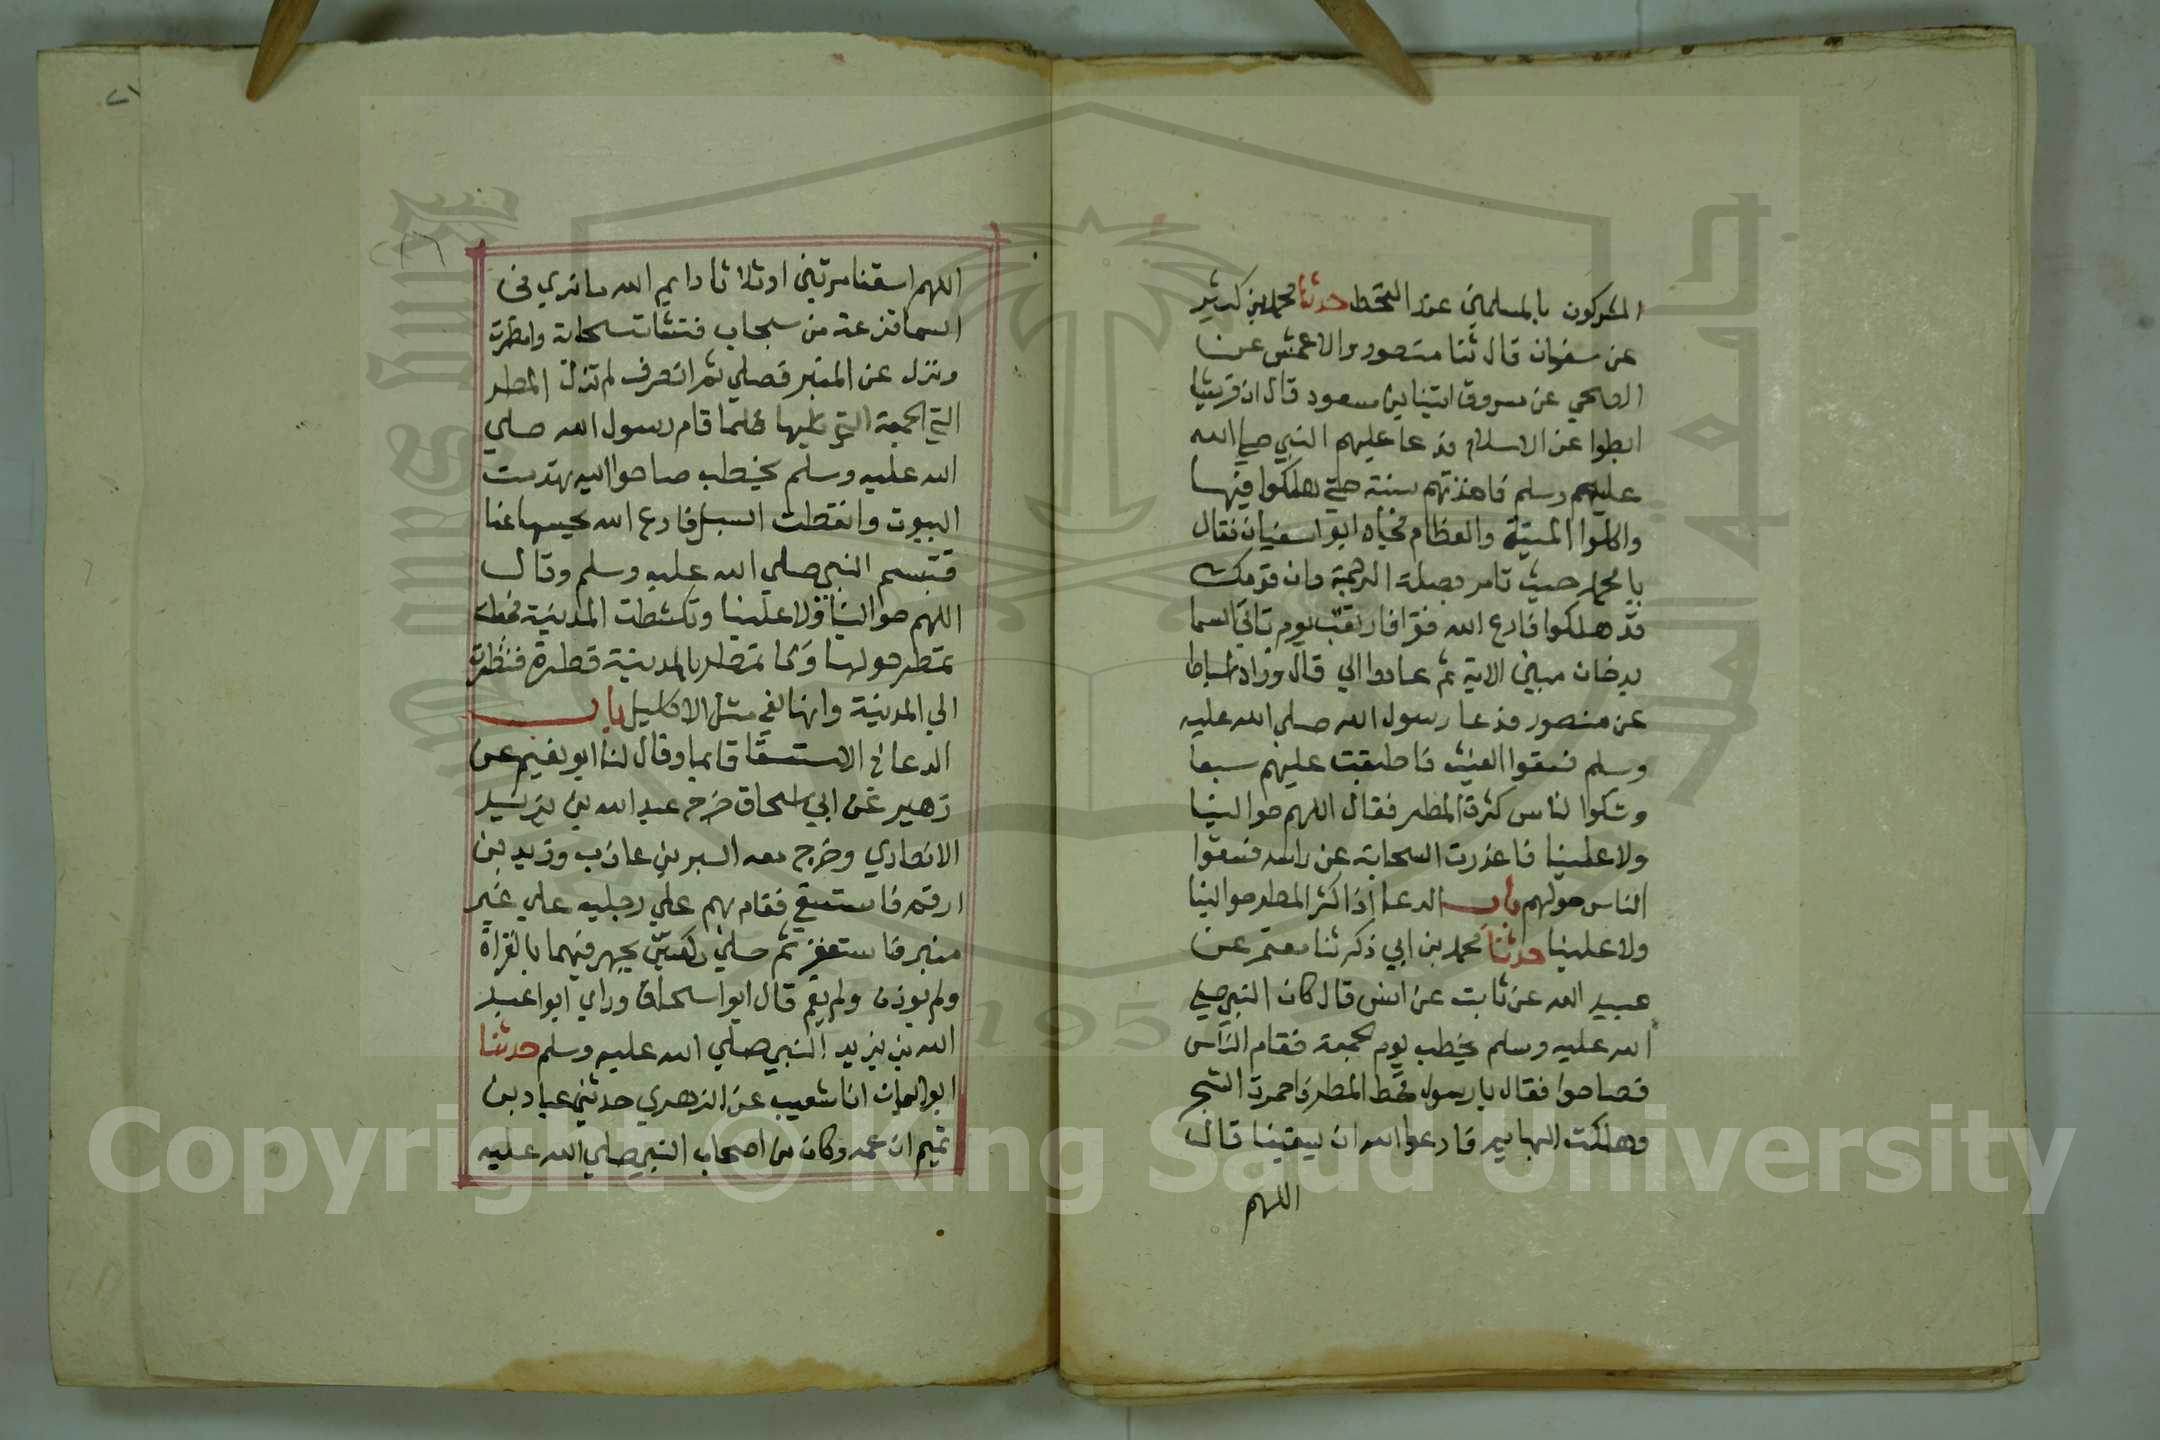 المشركون بالمسلمين عند القحط حدثنا محمد بن كثير
عن سفيان قال ثنا منصور والاعمش عن
الضحي عن مسروق اتينا ابن مسعود قال ان قريشا
ابطوا عن الاسلام فدعا عليهم النبي صلي الله
عليهم وسلم فاخذتهم سنة حتي هلكوا فيها
واكلوا الميتة والعظام فجاه ابوا سفيان فقال
يا محمد جيت تامر بصلة الرحمة وان قومك
قد هلكوا فادع الله فقرا فارتقب يوم تاتي السما
بدخان مبين الاية ثم عادوا الي قال وزاد اسباط
عن منصور فدعا رسول الله صلي الله عليه
وسلم فسقوا الغيث فاطبقت عليهم سبعا
وشكوا لناس كثرة المطر فقال اللهم حوالينا
ولا علينا فاعذرت السحابة عن راسه فسقوا
الناس حولهم باب الدعا اذا كثر المطر حوالينا
ولا علينا حدثنا محمد بن ابي ذكر ثنا معتمر عن
عبيد الله عن ثابت عن انس قال كان النبي صلي
الله عليه وسلم يخطب يوم جمعة فقام الناس
فصاحوا فقال يا رسول قحط المطر فاحمرت الشجر
وهلكت البهايم فادعوا الله ان يسقينا قال
اللهم
اللهم اسقنا مرتين او ثلاثا وايم الله ما نري في
السما قزعة من سحاب فنشات سحابة وامطرت
ونزل عن المنبر فصلي ثم انصرف لم تزل المطر
التي الجمعة التي تليها فلما قام رسول الله صلي
الله عليه وسلم يخطب صاحوا اليه تهدمت
البيوت وانقطت السبل فادع الله يحبسها عنا
فتبسم النبي صلي الله عليه وسلم وقال
اللهم حوالينا ولا علينا وتكشطت المدينة فجعلت
تمطر حولها وما تمطر بالمدينة قطرة فنظرت
الي المدينة وانها لفي مثل الاكليل باب
الدعا في الاستسقا قايما وقال لنا ابو نعيم عن
زهير عن ابي اسحاق خرج عبد الله بن يزيد
الانصاري وخرج معه البر بن عازب وزيد بن
ارقم فاستسقي فقام بهم علي رجليه علي غير
منبر فاستغفر ثم صلي ركعتين يجهر فيهما بالقراة
ولم يوذن ولم يقم قال ابوا اسحاق وراي ابوا عبد
الله بن يزيد النبي صلي الله عليه وسلم حدثنا
ابو اليمان انا شعيب عن الزهري حدثني عباد بن
تميم ان عمه وكان من اصحاب النبي صلي الله عليه
Copyright © King Saud University
King Saud University
1957